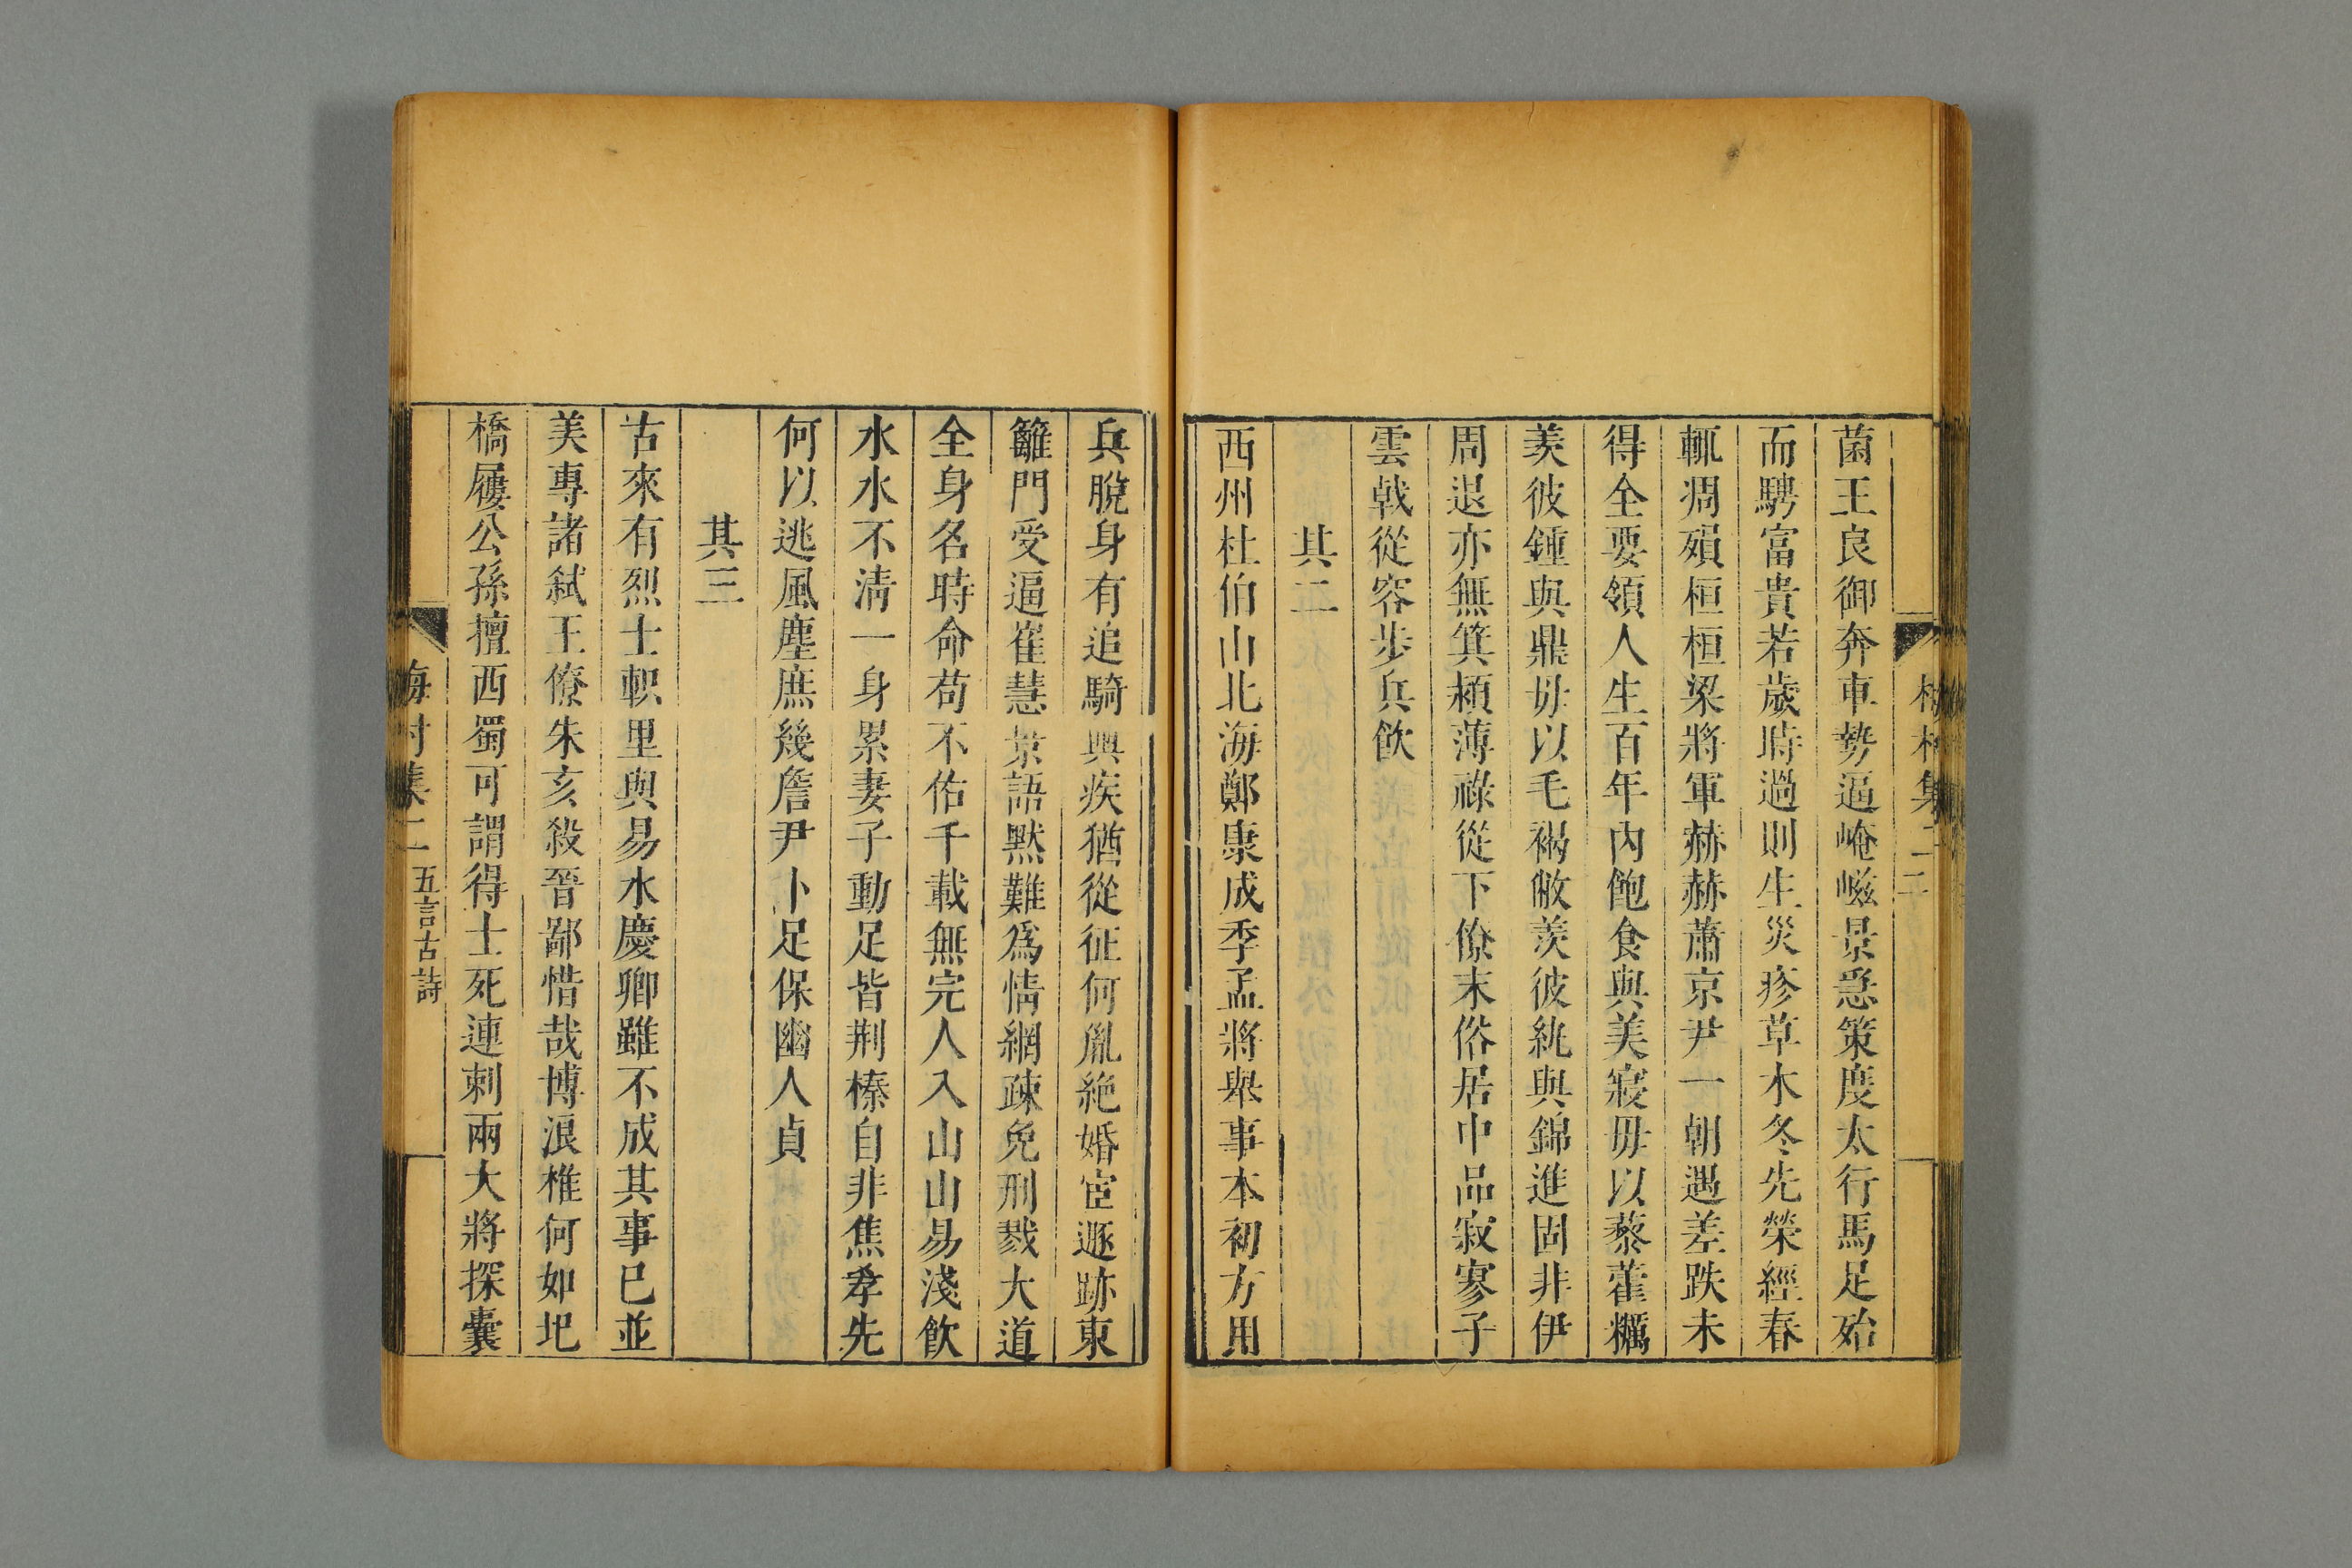 菌王良御奔車勢逼崦嵫景急策度太行馬足殆
而騁富貴若歲時過則生災疹草木冬先榮經春
輒凋殞桓桓梁將軍赫赫蕭京尹一朝遇差跌未
得全要領人生百年內飽食與美寢毋以藜藿糲
羨彼鍾與鼎毋以毛褐敝羨彼絁與錦進固非伊
周退亦無箕潁薄祿從下僚末俗居中品寂寥子
雲戟從容步兵飲
其二
西州杜伯山北海鄭康成季孟將舉事本初方用
兵脫身有追騎輿疾猶從征何胤絶婚宦遯跡東
籬門受逼崔慧景語默難爲情網疎免刑戮大道
全身名時命苟不佑千載無完人入山山易淺飲
水水不清一身累妻子動足皆荆榛自非焦孝先
何以逃風塵庶幾詹尹卜足保幽人貞
其三
古來有烈士軹里與易水慶卿雖不成其事已並
美專諸弑王僚朱亥殺晉鄙惜哉博浪椎何如圯
橋屨公孫擅西蜀可謂得士死連刺兩大將探囊
梅村集二 五言古詩